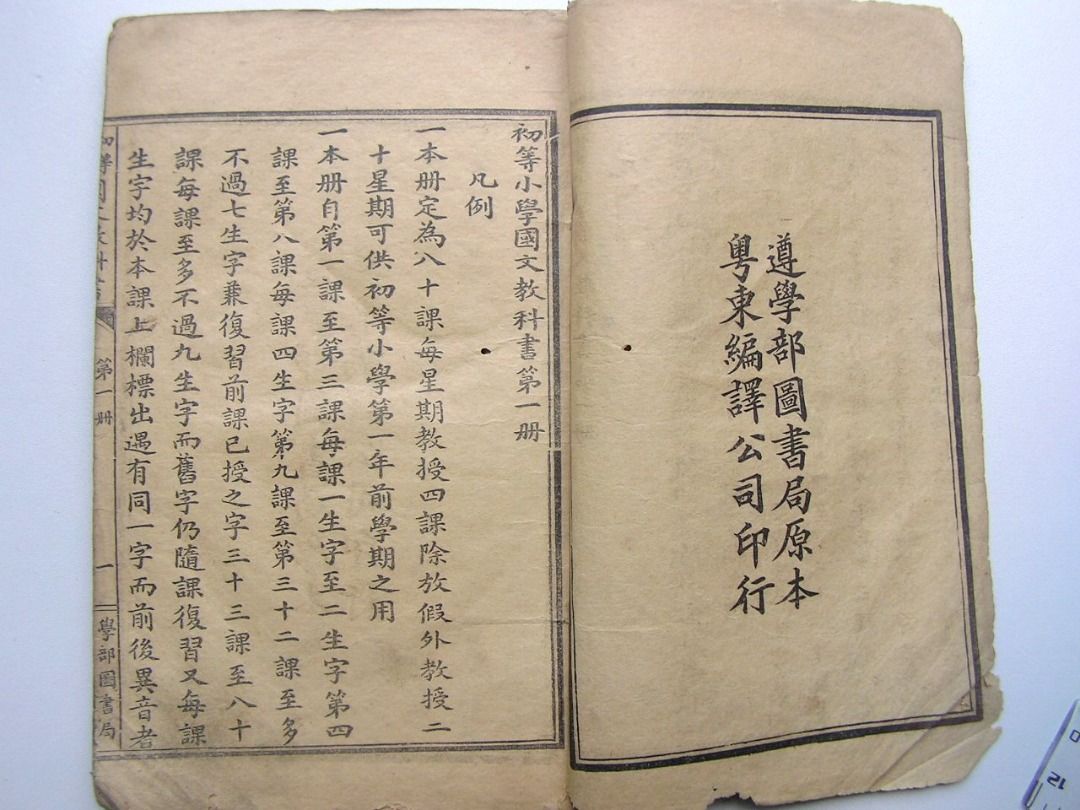 遵學部圖書局原本
粵東編譯公司印行
初等小學國文教科書第一册
凡例
一本册定為八十課每星期教授四課除放假外教授二
十星期可供初等小學第一年前學期之用
一本册自第一課至第三課每課一生字至二生字第四
課至第八課每課四生字第九課至第三十二課至多
不過七生字兼復習前課已授之字三十三課至八十
課每課至多不過九生字而舊字仍隨課復習又每課
生字均於本課上欄標出遇有同一字而前後異音者
初等國文教科書 第一册 一 學部圖書局